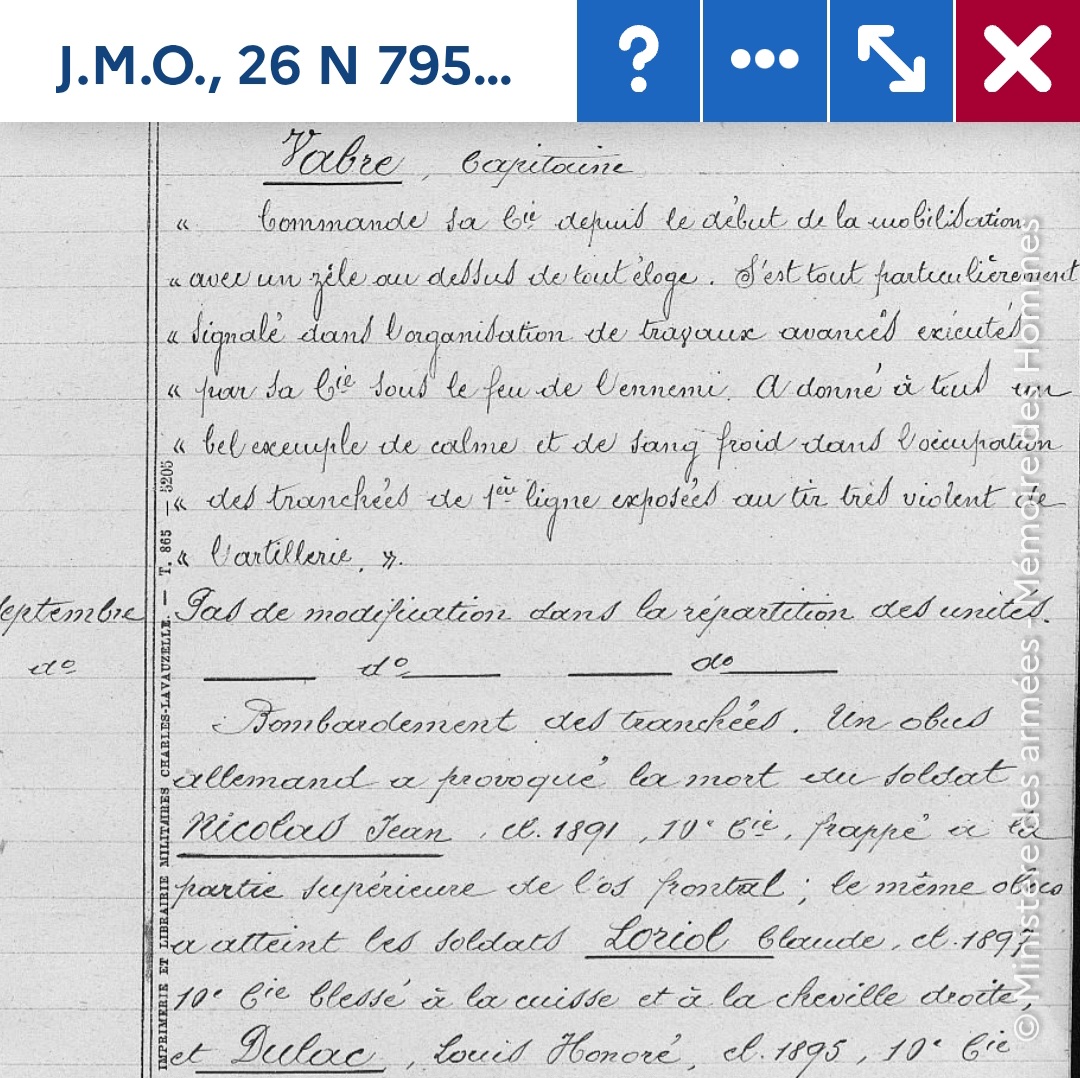 J.M.O., 26 N 795...
Vabre, Capitaine
« Commande sa Cie depuis le début de la mobilisation
« avec un zèle au dessus de tout éloge. S'est tout particulièrement
« signalé dans l'organisation de travaux avancés exécutés
« par sa Cie sous le feu de l'ennemi. A donné à tous un
« bel exemple de calme et de sang froid dans l'occupation
« des tranchées de 1ère ligne exposées au tir très violent de
« l'artillerie. ».
septembre Pas de modification dans la répartition des unités.
do do do
Bombardement des tranchées. Un obus
allemand a provoqué la mort du soldat
Nicolas Jean, cl. 1891, 10e Cie, frappé à la
partie supérieure de l'os frontal ; le même obus
a atteint les soldats Loriol Claude, cl. 1897
10e Cie blessé à la cuisse et à la cheville droite,
et Dulac, Louis Honoré, cl. 1895, 10e Cie
IMPRIMERIE ET LIBRAIRIE MILITAIRES CHARLES-LAVAUZELLE. — T. 865 — 5205
© Ministère des armées - Mémoire des Hommes